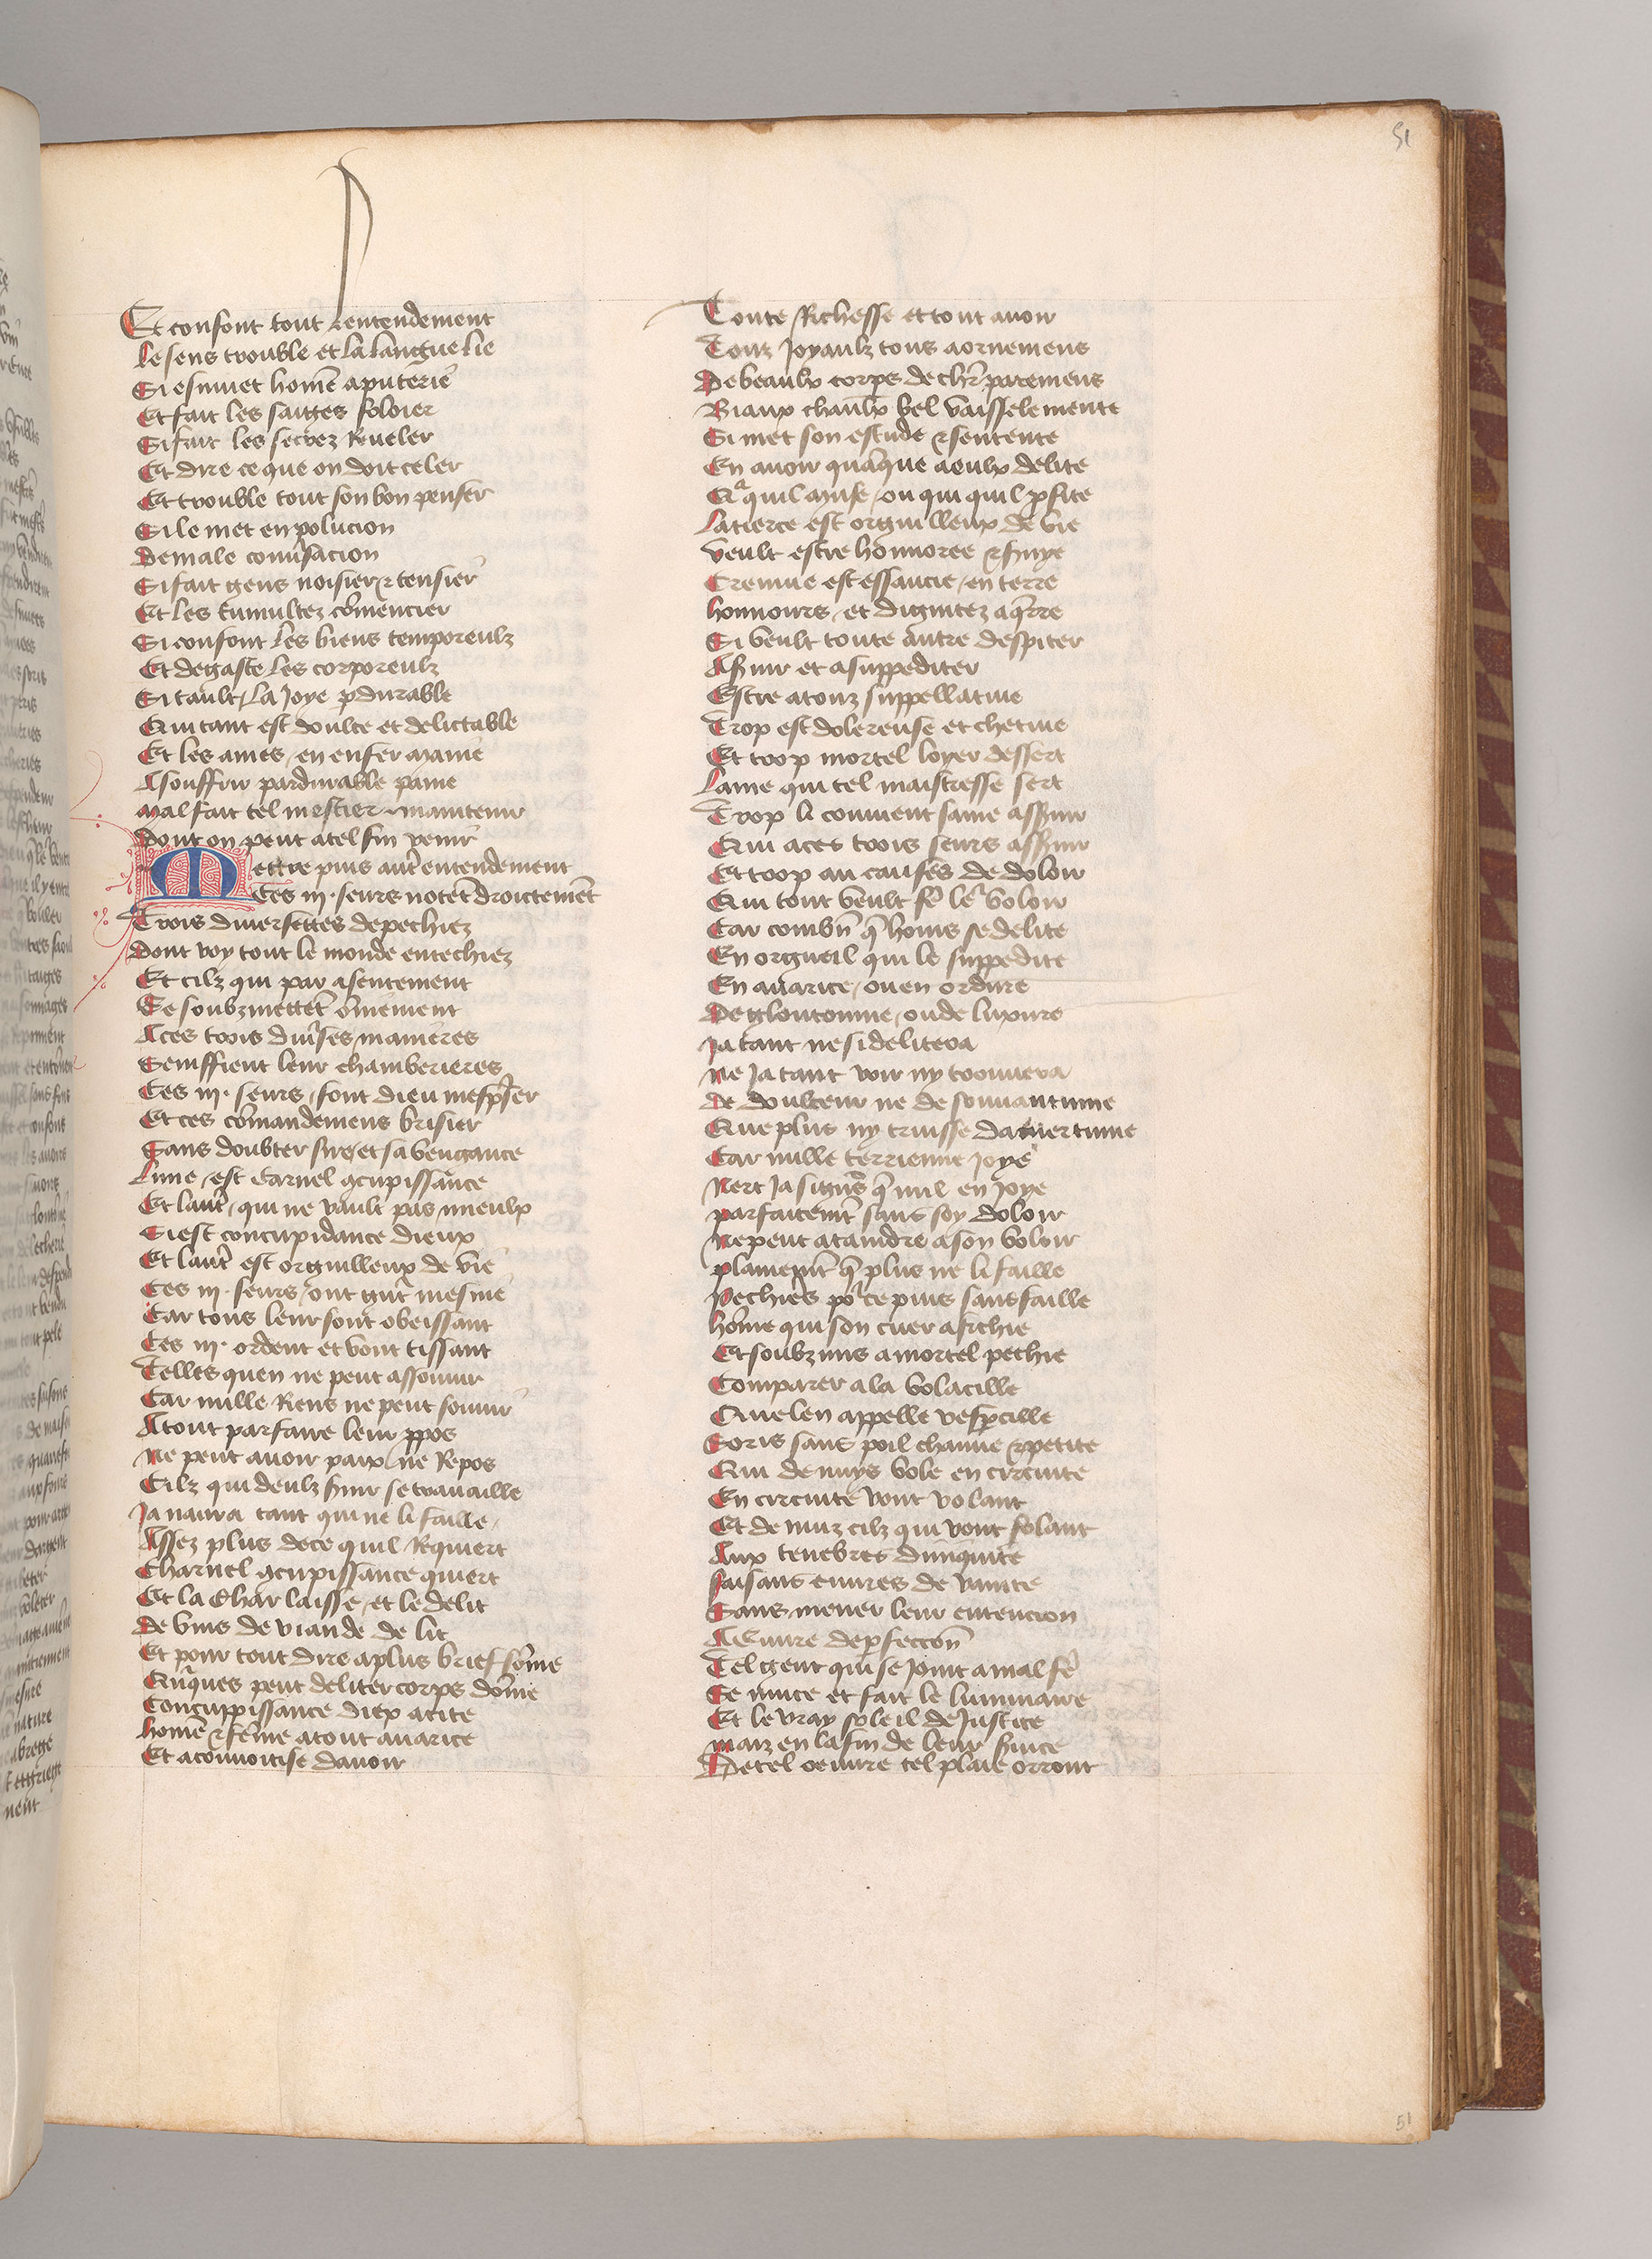 51
Et confont tout lentendement
Le sens trouble et la langue lie
Si esmuet home a puterie
Et fait les saiges foloier
Si fait les secrez reveler
Et dire ce que on doit celer
Et trouble tout son bon penser
Si le met en polucion
De male conversacion
Si fait gens noisier & tensier
Et les tumultez comencier
Si confont les biens temporeulz
Et degaste les corporeulz
Si tault la joye pdurable
Qui tant est doulce et delictable
Et les ames en enfer maine
A souffrir pardurable paine
Mal fait tel mestier maintenir
Dont on peut a tel fin venir
Mettre puis autre entendement
Ces iij. seurs notent droictement
Trois diversettes de pechiez
Dont voy tout le monde entechiez
Et cilz qui par asentement
Se soubzmettent
A ces trois diverses manieres
Senissient leur chamberieres
Ces iij. seurs font dieu mespriser
Et ces comandemens brisier
Sans doubter sire et sa vengance
Lune est carnel concupissance
Et lautre qui ne vault pas mieulx
Si est concupidance dieux
Et lautre est orguilleux de vie
Ces iij. seurs ont guerre mesme
Car tous leur sont obeissant
Ces iij. ordent et vont tissant
Telles quen ne peut assouvir
Car nulle riens ne peut souvir
A tout parfaire leur ppos
Ne peut avoir paix ne repos
Cilz qui deulz servir se travaille
Ja naura tant qui ne li faille
Assez plus de ce quil requiert
Charnel concupissance quiert
Et la char laisse et le delit
De vins de viande de lit
Et pour tout dire a plus brief some
Quques peut deliter corps dome
Concuppissance diex atite
Home & feme a tout avarice
Et a convoitise davoir
Toute richesse et tout avoir
Touz joyaulz tous aornemens
De beaulx corps de chiers paremens
Biaux chaulx bel vaisselemente
Si met son estude & sentente
En avoir quanque a eulx delite
A qui quil nuise ou qui quil pfite
La tierce est orguilleux de vie
Veult estre honnoree & servye
Cremue est essaucie en terre
Honnours et dignitez aquerre
Si veult toute autre despiter
Asservir et a suppediter
Estre a touz suppellative
Trop est dolereuse et chetive
Et trop mortel loyer dessert
Lame qui tel maistresse sert
Trop li convient same asservir
Qui a ces trois seurs asservir
Et trop au causes de doloir
Qui tout veult fere leur voloir
Car combien que homs se delite
En orgueil qui le suppedite
En avarice ou en ordure
De gloutonnie ou de luxure
Ja tant ne si delitera
Ne ja tant voir ny trouvera
De doulceur ne de souvautume
Que plus ny truisse damertume
Car nulle terrienne joye
Nert ja si grans que nul en joye
Parfaitement sans soy doloir
Ne peut ataindre a son voloir
Plainement que plus ne li faille
Pechies pour ce puis sans faille
Home qui son cuer a fichie
Et soubzmis a mortel pechie
Comparer a la volatille
Que len appelle vespertille
Soris sans poil chauve & petite
Qui de nuys vole en circuite
En circuite vont volant
Et de nuiz cilz qui vont folant
Aux tenebres diniquite
Faisans euvres de vanite
Sans mener leur entencion
A euvre de pfeccion
Tel gent qui se joint a mal fere
Ce nuice et fait le luminaire
Et le vray soleil de justice
Maiz en la fin de leur service
De tel oeuvre tel plait orront
51